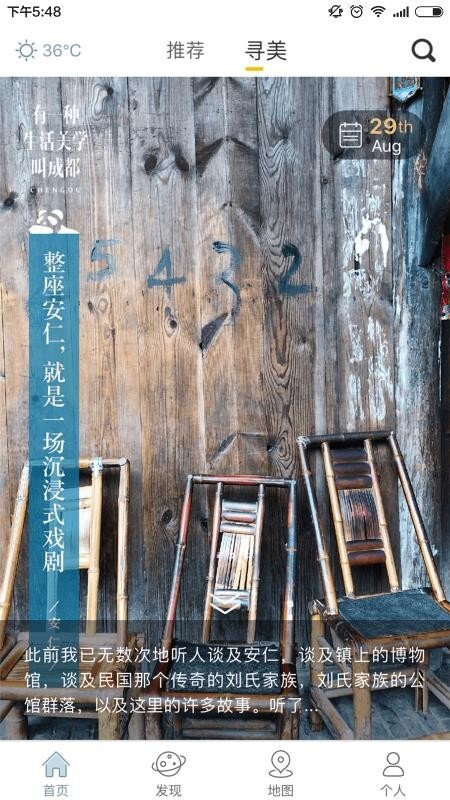 下午5:48
36°C
推荐
寻美
有一种
生活美学
叫成都
CHENGDU
29th
Aug
5432
整座安仁，就是一场沉浸式戏剧
／安仁
此前我已无数次地听人谈及安仁，谈及镇上的博物
馆，谈及民国那个传奇的刘氏家族，刘氏家族的公
馆群落，以及这里的许多故事。听了...
首页
发现
地图
个人